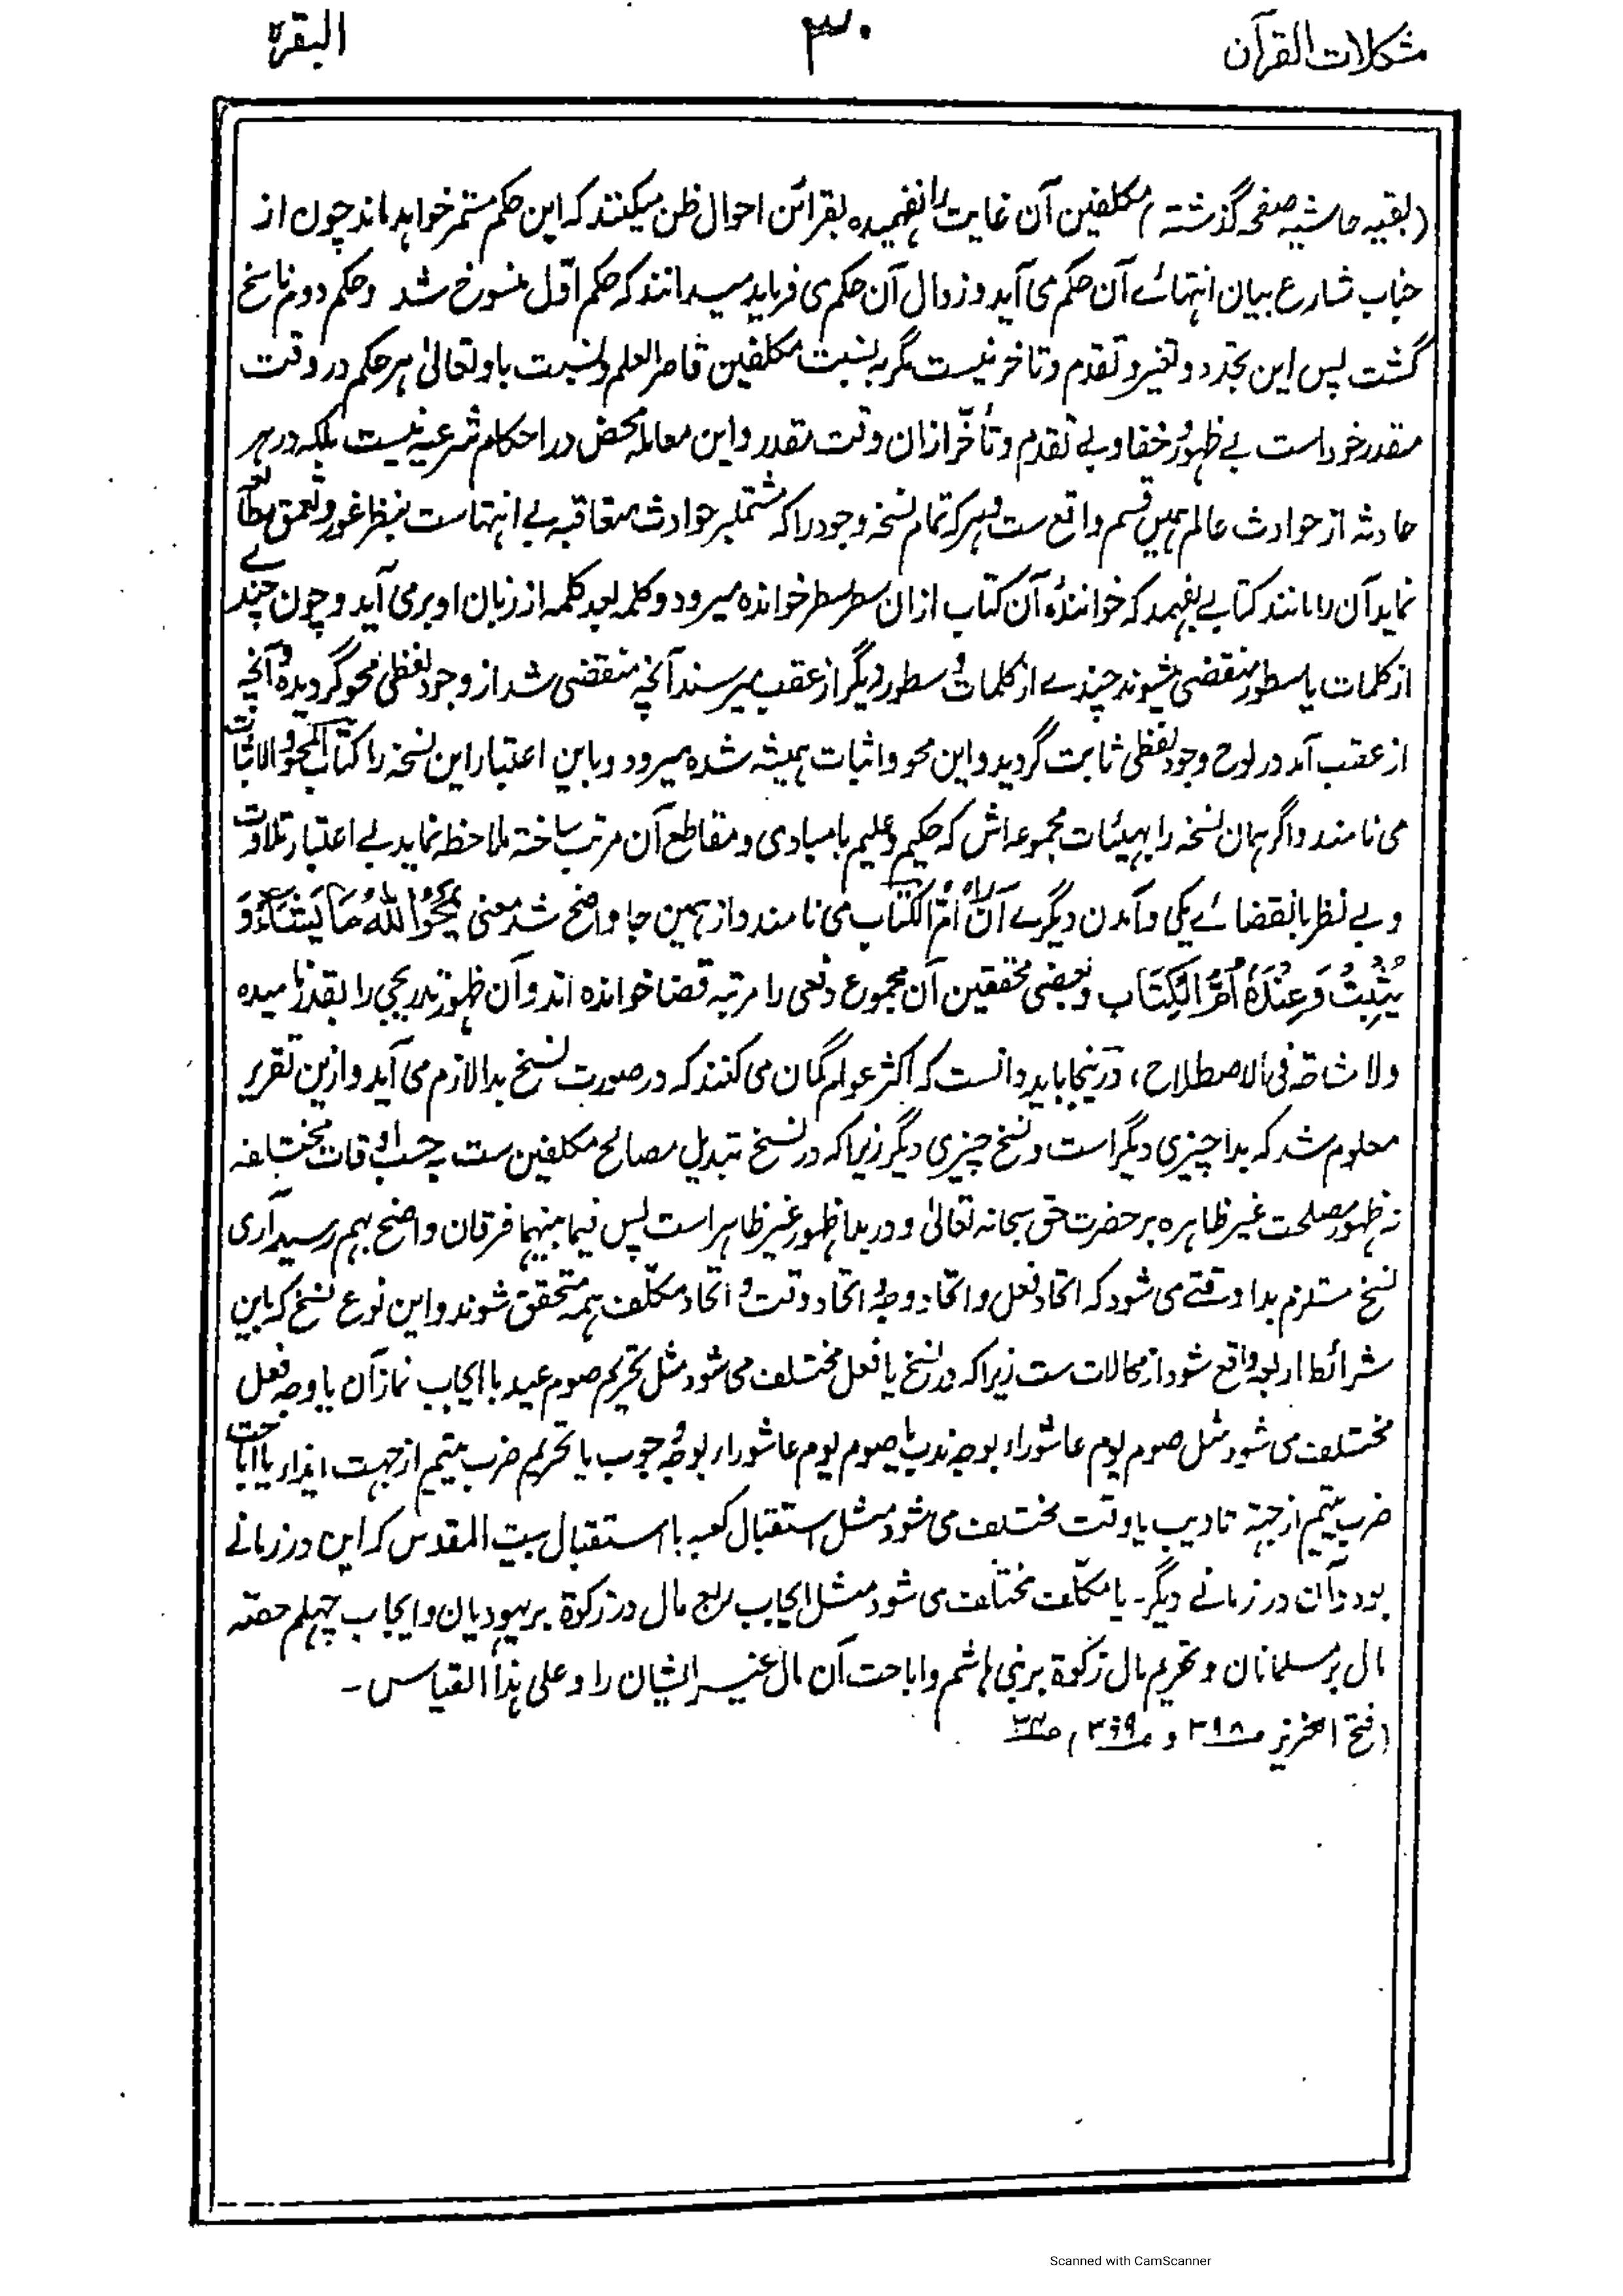 مشکلات القرآن
۳۰
البقرة
(بقیہ حاشیہ صفحہ گذشتہ) مکلفین آن غایت را نفہمیدہ بقرائن احوال ظن میکنند کہ این حکم مستمر خواہد ماند چون از
جناب شارع بیان انتہائے آن حکم می آید و زوال آن حکم می فرماید میدانند کہ حکم اوّل منسوخ شد و حکم دوم ناسخ
گشت پس این تجدد و تغیر و تقدم و تاخر نیست مگر بہ نسبت مکلفین قاصر العلم و نسبت باو تعالیٰ ہر حکم در وقت
مقدر خود است بے ظہور و خفا و بے تقدم و تأخّر ازان وقت مقدر و این معاملہ محض در احکام شرعیہ نیست بلکہ در ہر
حادثہ از حوادث عالم ہمین قسم واقع ست و ہر کہ تمام نسخہ وجود را کہ مشتمل بر حوادث متعاقبہ بے انتہاست بنظر غور و تعمق مطالعہ
نماید آن را مانند کتابے بفہمد کہ خوانندۂ آن کتاب ازان سطر سطر خواندہ میرود و کلمہ بعد کلمہ از زبان او بر می آید و چون چندے
از کلمات یا سطور منقضی میشوند چندے از کلمات و سطور دیگر از عقب میرسند آنچہ منقضی شد از وجود لفظی محو گردیدہ و آنچہ
از عقب آمد در لوح وجود لفظی ثابت گردید و این محو و اثبات ہمیشہ شدہ میرود و باین اعتبار این نسخہ را کتاب المحو و الاثبات
می نامند و اگر ہمان نسخہ را بہیئات مجموعہ اش کہ حکیم و علیم با مبادی و مقاطع آن مرتب ساختہ ملاحظہ نماید بے اعتبار تلاوت
و بے نظر بانقضائے یکی و آمدن دیگرے آن را اُمّ الکتاب می نامند و از ہمین جا واضح شد معنی یَمْحُوا اللّٰهُ مَا یَشَآءُ وَ
یُثْبِتُ وَعِنْدَهٗ اُمُّ الْکِتَابِ و بعضی محققین آن مجموع دفعی را مرتبہ قضا خواندہ اند و آن ظہور تدریجی را بقدر نامیدہ
ولا مشاحۃ فی الاصطلاح، درینجا باید دانست کہ اکثر عوام گمان می کنند کہ در صورت نسخ بدا لازم می آید و ازین تقریر
معلوم شد کہ بدا چیزی دیگر است و نسخ چیزی دیگر زیرا کہ در نسخ تبدیل مصالح مکلفین ست بہ حسب اوقات مختلفہ
نہ ظہور مصلحت غیر ظاہرہ بر حضرت حق سبحانہ تعالیٰ و در بدا ظہور غیر ظاہر است پس فیما بینہما فرقان واضح بہم رسید آری
نسخ مستلزم بدا وقتے می شود کہ اتحاد فعل و اتحاد وجہ و اتحاد وقت و اتحاد مکلّف ہمہ متحقق شوند و این نوع نسخ کہ باین
شرائط اربعہ واقع شود از محالات ست زیرا کہ در نسخ یا فعل مختلف می شود مثل تحریم صوم عید با ایجاب نماز آن یا وجہ فعل
مختلف می شود مثل صوم یوم عاشوراء بوجہ ندب یا صوم یوم عاشوراء بوجہ وجوب یا تحریم ضرب یتیم از جہت ایذاء یا اباحت
ضرب یتیم از جہتہ تادیب یا وقت مختلف می شود مثل استقبال کعبہ با استقبال بیت المقدس کہ این در زمانے
بود و آن در زمانے دیگر۔ یا مکلّف مختلف می شود مثل ایجاب ربع مال در زکوۃ بر یہودیان و ایجاب چہلم حصہ
مال بر مسلمانان و تحریم مال زکوۃ بر بنی ہاشم و اباحت آن مال غیر ایشان را و علی ہذا القیاس۔
(فتح العزیز ص۳۹۸ و ص۳۹۹)
Scanned with CamScanner